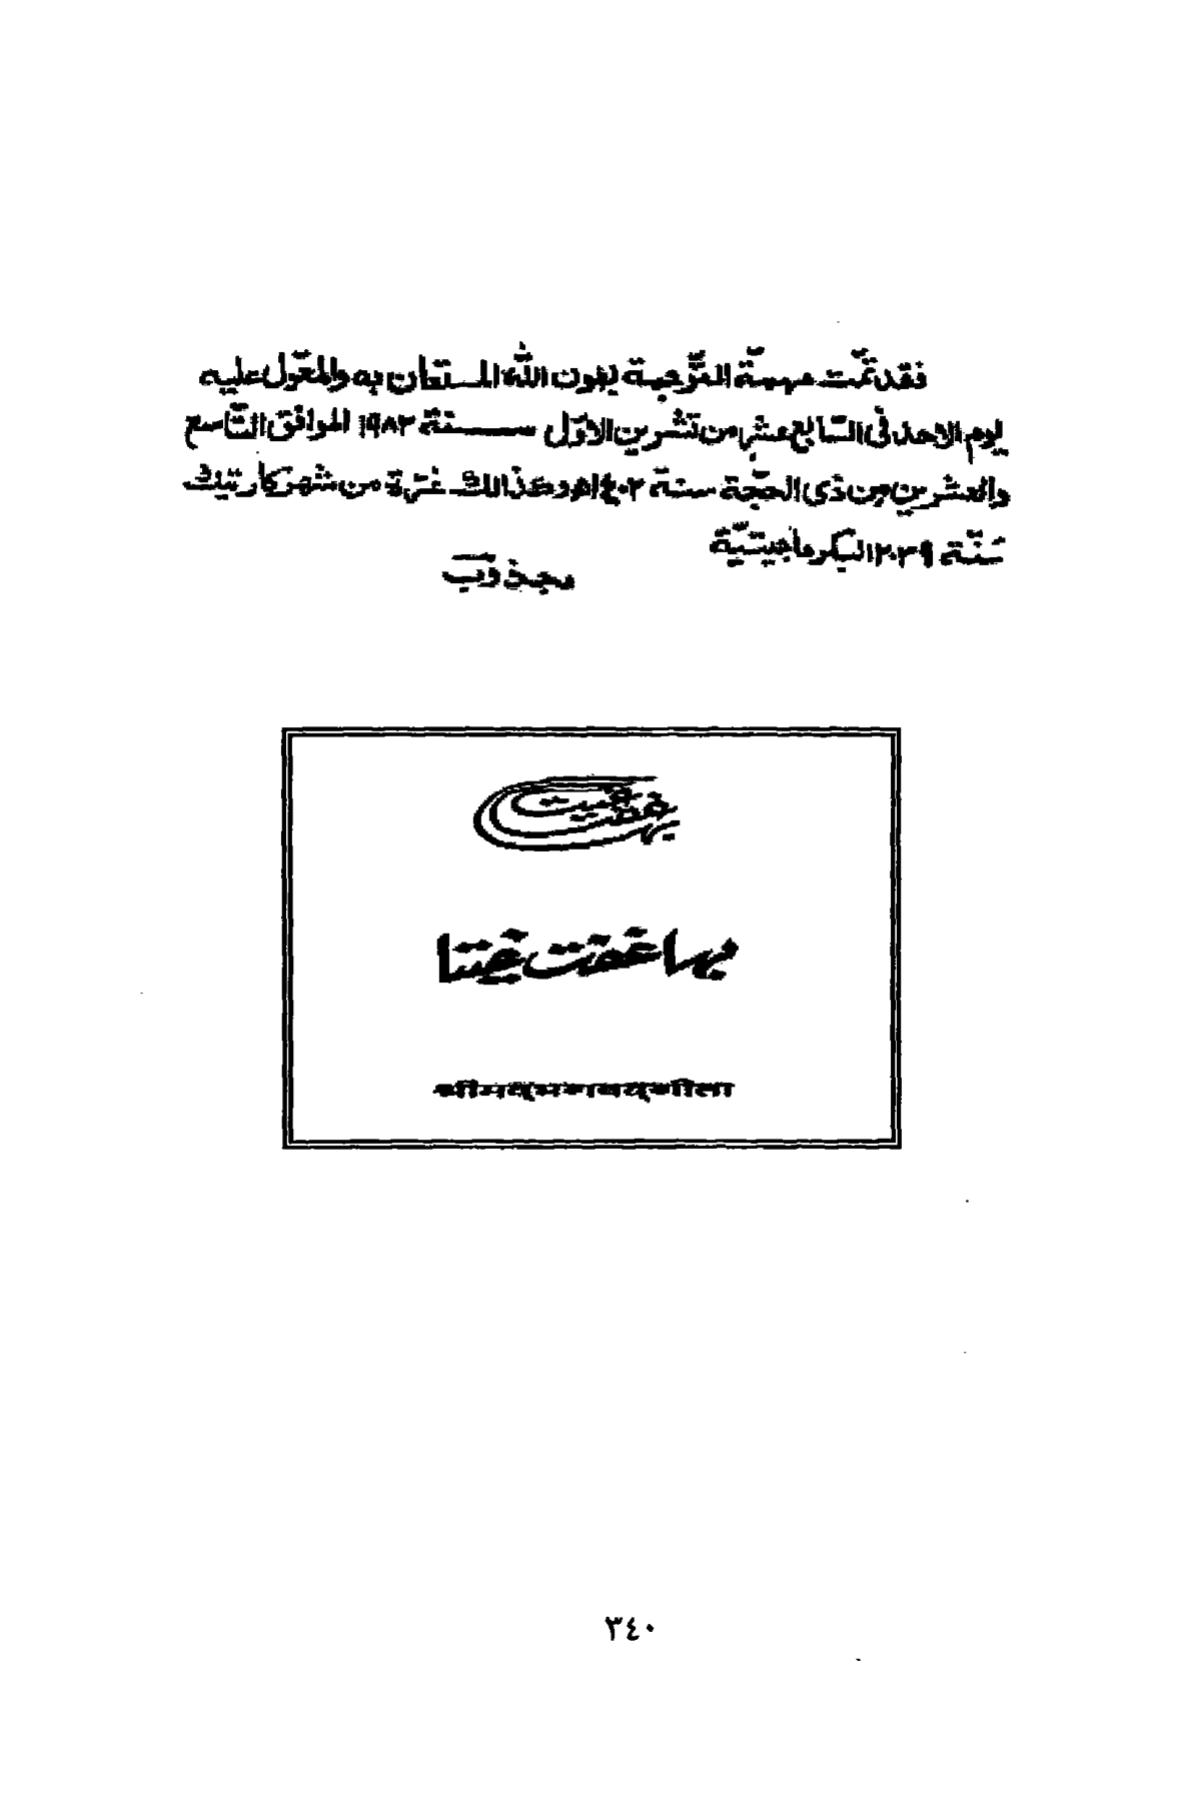 فقد تمّت مهمّة التّرجمة بعون الله المستعان به والمعّول عليه
يوم الاحد فى السّابع عشر من تشرين الاوّل سنة ١٩٨٢ الموافق التّاسع
والعشرين من ذى الحجّة سنة ١٤٠٢هـ وكذالك غرّة من شهر كارتيك
سنّة ٢٠٣٩ البكرماجيتيّة
مجذوب
مها غفت غيتا
श्रीमद्भगवद्गीता
٣٤٠